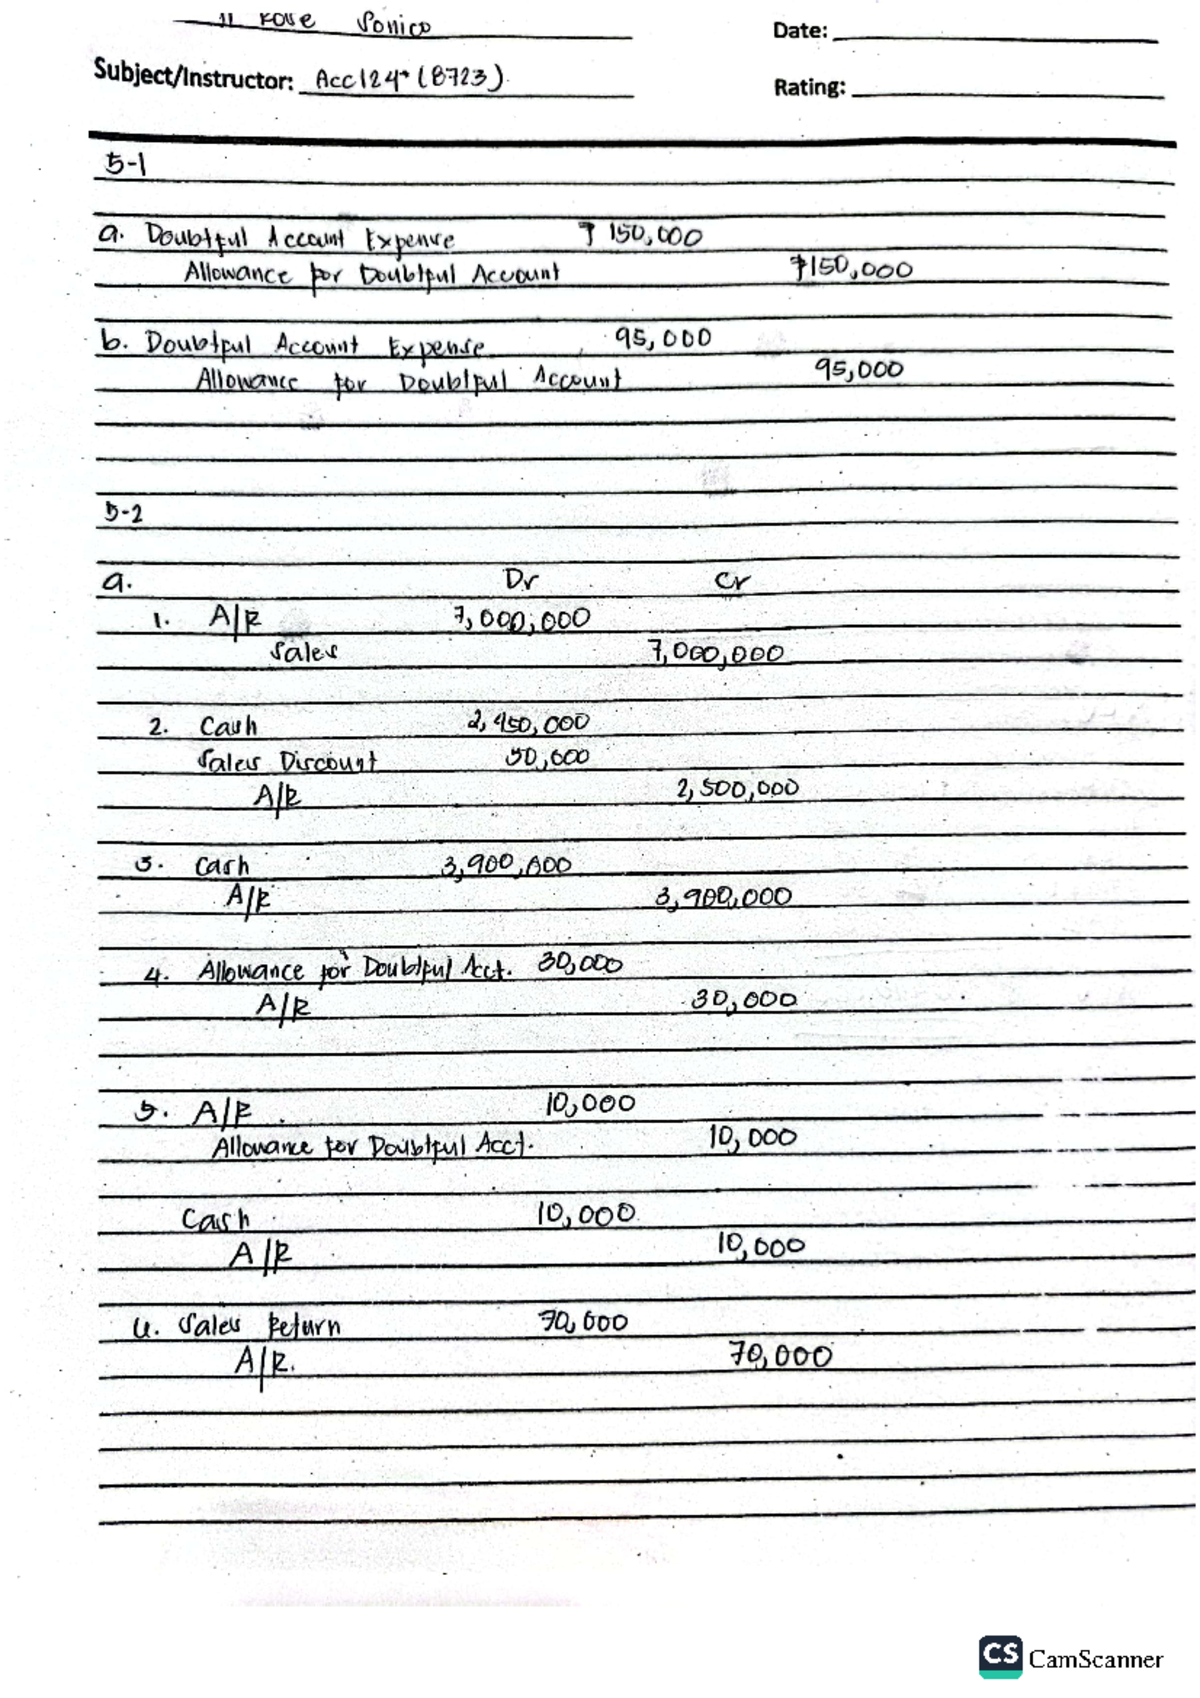 Rose Sonico
Date:
Subject/Instructor: Acc124 (8723)
Rating:
5-1
a. Doubtful Account Expense ₱ 150,000
Allowance for Doubtful Account ₱150,000
b. Doubtful Account Expense 95,000
Allowance for Doubtful Account 95,000
5-2
a. Dr Cr
1. A/R 7,000,000
Sales 7,000,000
2. Cash 2,450,000
Sales Discount 50,000
A/R 2,500,000
3. Cash 3,900,000
A/R 3,900,000
4. Allowance for Doubtful Acct. 30,000
A/R 30,000
5. A/R 10,000
Allowance for Doubtful Acct. 10,000
Cash 10,000
A/R 10,000
6. Sales Return 70,000
A/R. 70,000
CS CamScanner